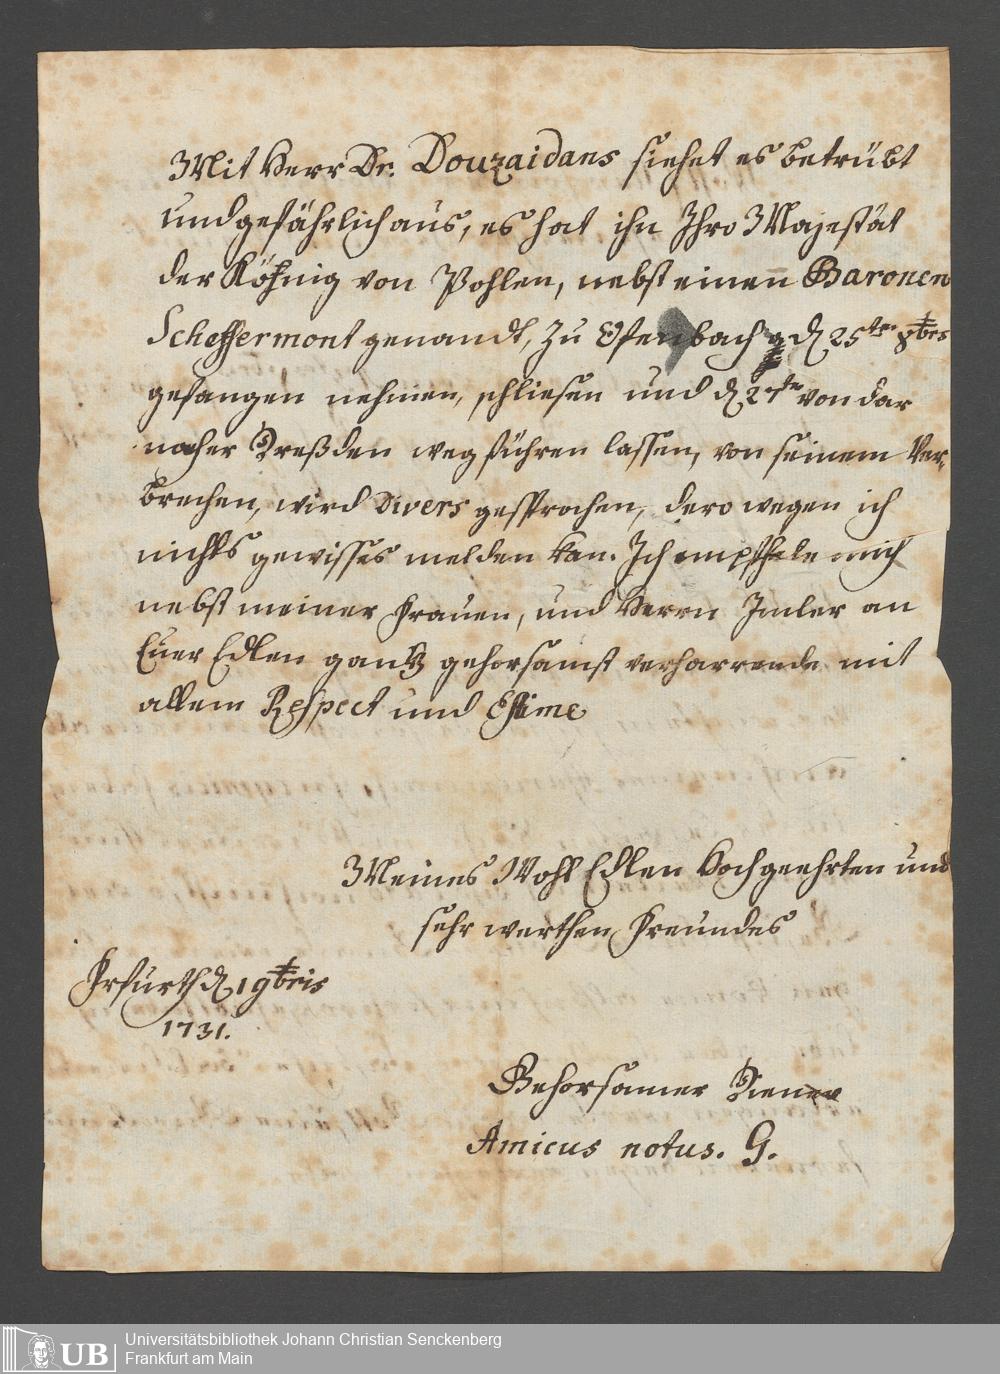 Mit Herr Dr. Douzaidans siehet es betrübt
und gefährlich aus, es hat ihn Ihro Majestät
der Köhnig von Pohlen, nebst einen Baronen
Scheffermont genandt, zu Ofenbach d 25ten 8bris
gefangen nehmen, schliesen und d 27ten von dar
nacher Dreßden weg führen lassen, von seinem Ver-
brechen, wird Divers gesprochen, dero wegen ich
nichts gewisses melden kan. Ich empfhele mich
nebst meiner Frauen, und Herrn Imler an
Euer Edlen gantz gehorsamst verharrende mit
allem Respect und Estime
Meines Wohl Edlen Hochgeehrten und
sehr werthen Freundes
Erfurth d 1 9bris
1731.
Gehorsamer Diener
Amicus notus. G.
UB
Universitätsbibliothek Johann Christian Senckenberg
Frankfurt am Main